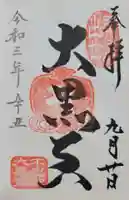 奉拝
九月廿日
大黒天
令和三年辛丑